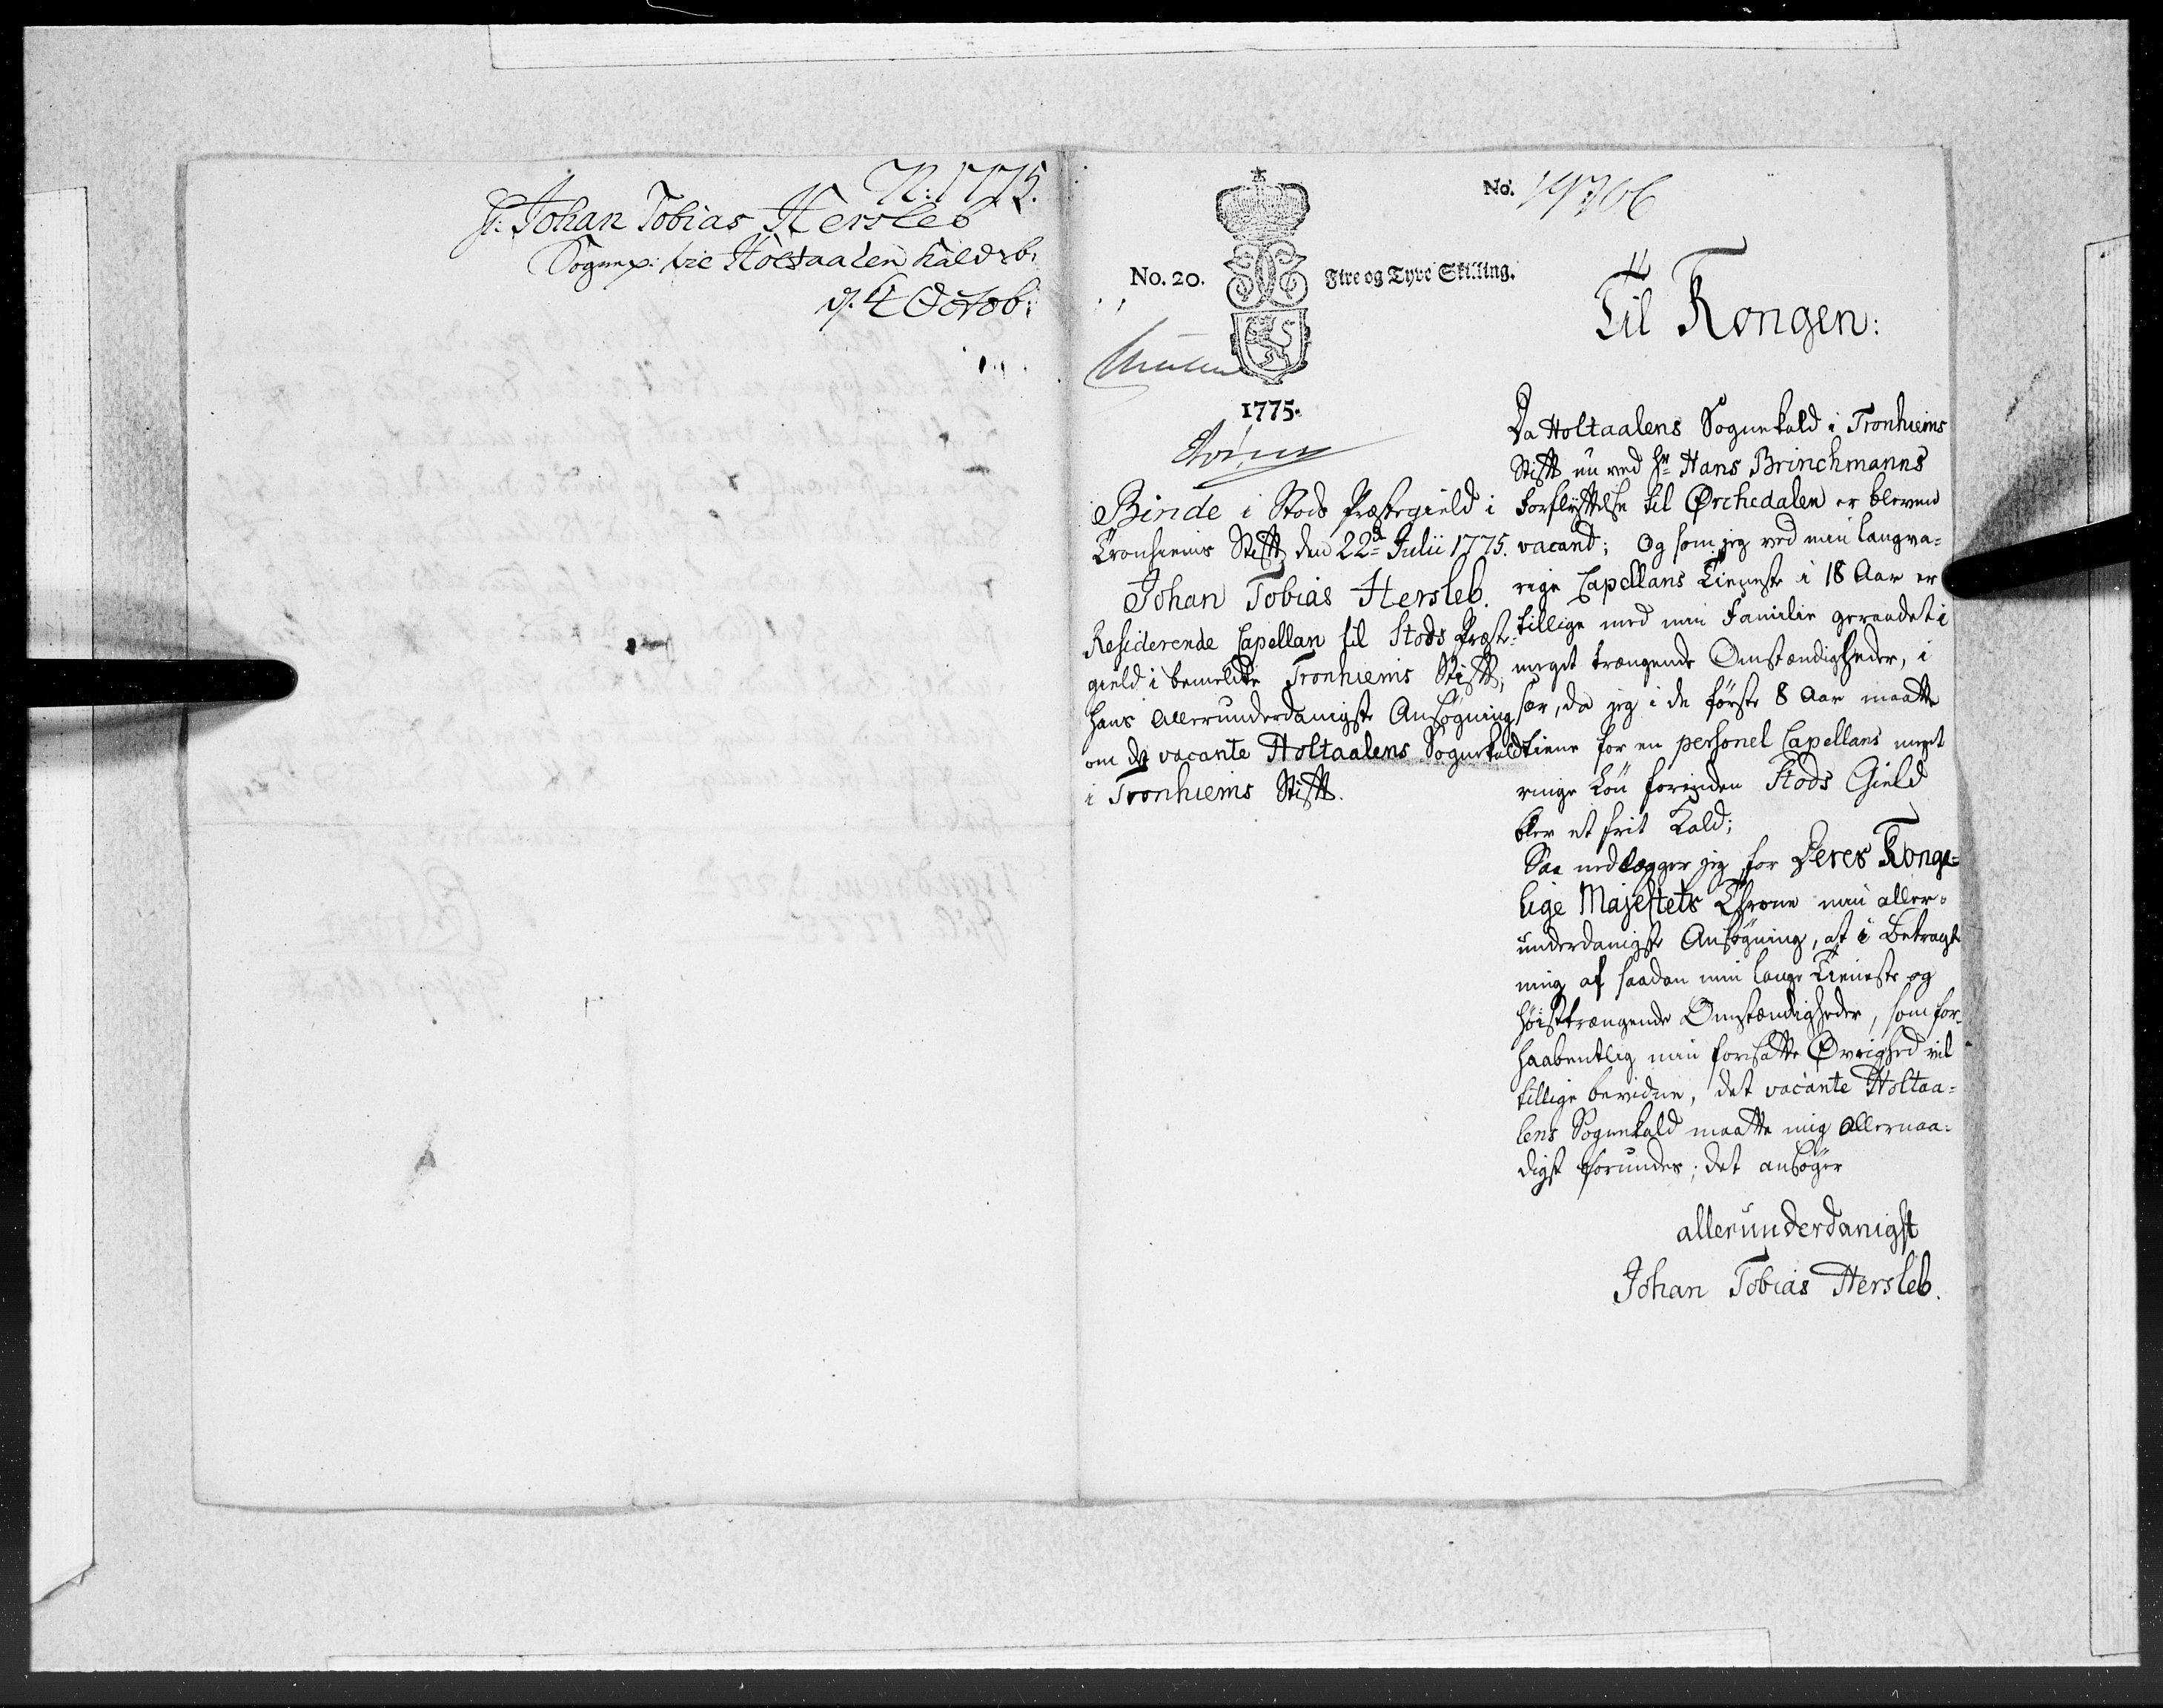 N: 1775.
Hr: Johan Tobias Hersleb
Sognep: til Holtaalen Kald
d. 4 Octob:
No. 19706
No. 20.
Fire og Tyve Skilling.
1775.
Binde i Stods Præstegield i
Tronhiems Stift den 22de Julii 1775.
Johan Tobias Hersleb.
Residerende Capellan til Stods Præste-
gield i bemeldte Tronhiems Stift;
hans allerunderdanigste Ansøgning
om det vacante Holtaalens Sognekald
i Tronhiems Stift.
Til Kongen:
Da Holtaalens Sognekald i Tronhiems
Stift nu ved Hr Hans Brinchmanns
Forflyttelse til Ørchedalen er bleven
vacant; Og som jeg ved min langva-
rige Capellans Tieneste i 18 Aar er
tillige med min Familie geraadet i
meget trængende Omstændigheder, i
sær, da jeg i de første 8 Aar maatte
tiene for en personel Capellans meget
ringe Løn forinden Stods Gield
blev et frit Kald;
Saa nedlægger jeg for Deres Konge-
lige Majestets Throne min aller-
underdanigste Ansøgning, at i Betragt-
ning af saadan min lange Tieneste og
høisttrængende Omstændigheder, som for-
haabentlig min foresatte Øvrighed vil
tillige bevidne, det vacante Holtaa-
lens Sognekald maatte mig allernaa-
digst forundes; det ansøger
allerunderdanigst
Johan Tobias Hersleb.